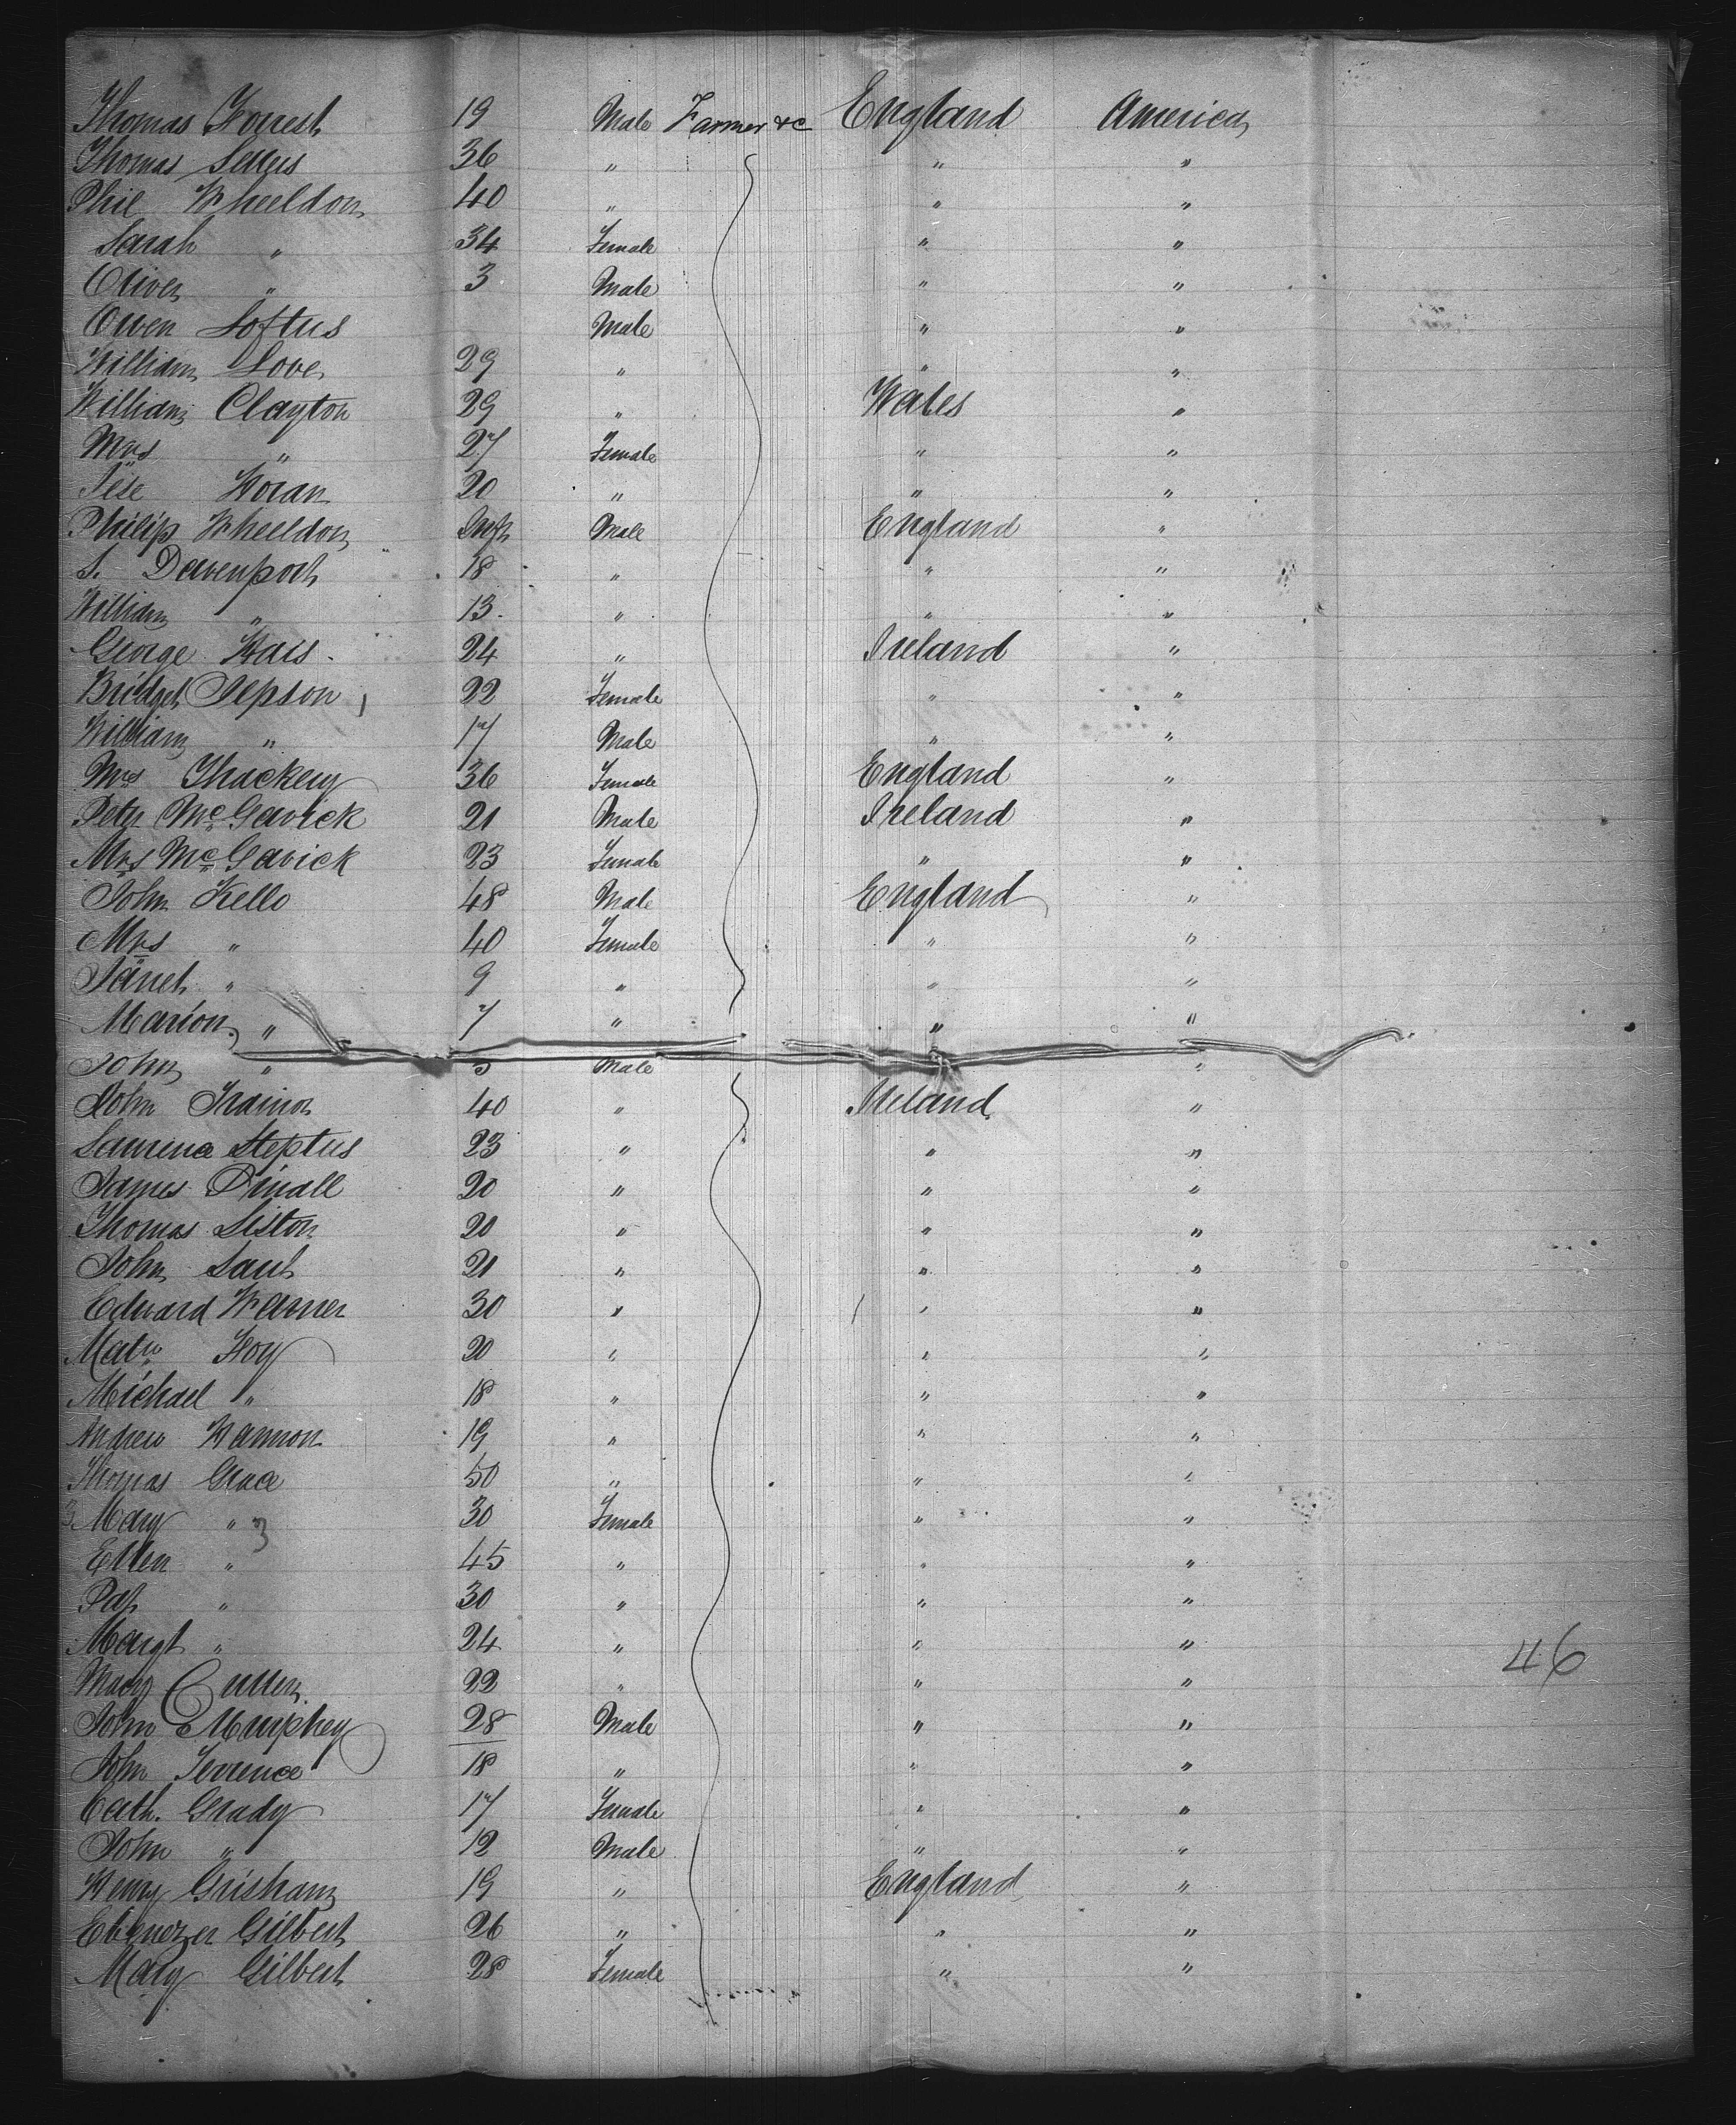 Thomas Forrest 19 Male Farmer &c England America
Thomas 36 " " "
Phil Wheeldon 40 " " "
Sarah " 34 Female " "
Oliver " 3 Male " "
Owen Loftus Male " "
William Love 29 " " "
William Clayton 29 " Wales "
Mrs " 27 Female " "
20 " " "
Philip Wheeldon Inft Male England "
S. Davenport 18 " " "
William " 13 " " "
George 24 " Ireland "
Bridget Jepson 22 Female " "
William " 17 Male " "
Mrs Thackery 36 Female England "
Peter McGavick 21 Male Ireland "
Mrs McGavick 23 Female " "
John Kello 48 Male England "
Mrs " 40 Female " "
Janet " 9 " " "
Marion " 7 " " "
John " 5 Male "
John Trainor 40 " Ireland "
Laurence Steptus 23 " " "
James 20 " " "
Thomas Liston 20 " " "
John 21 " " "
Edward Warner 30 " " "
Matw Hoy 20 " " "
Michael " 18 " " "
Andrew Hannon 19 " " "
Thomas Grace 50 " " "
3 Mary " 3 30 Female " "
Ellen " 45 " " "
Pat " 30 " " "
Margt " 24 " " "
46
Mary Cullen 22 " " "
John Murphey 28 Male " "
John Terrence 18 " " "
Cath. Grady 17 Female " "
John " 12 Male " "
Henry Grisham 19 " England "
Ebenezer Gilbert 26 " " "
Mary Gilbert 28 Female " "